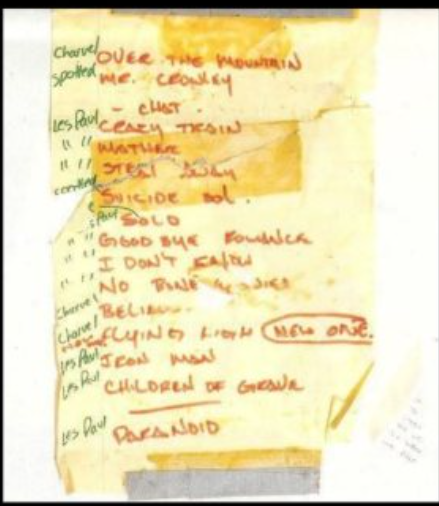 Charvel OVER THE MOUNTAIN
spotted MR. CROWLEY
- CHAT -
Les Paul CRAZY TRAIN
" " MOTHER
" " STEAL AWAY
spotted SUICIDE SOL.
Les Paul SOLO
" " GOOD BYE ROMANCE
" " I DON'T KNOW
" " NO BONE MOVIES
Charvel BELIEVE
Charvel FLYING HIGH NEW ONE.
Les Paul IRON MAN
Les Paul CHILDREN OF GRAVE
Les Paul PARANOID